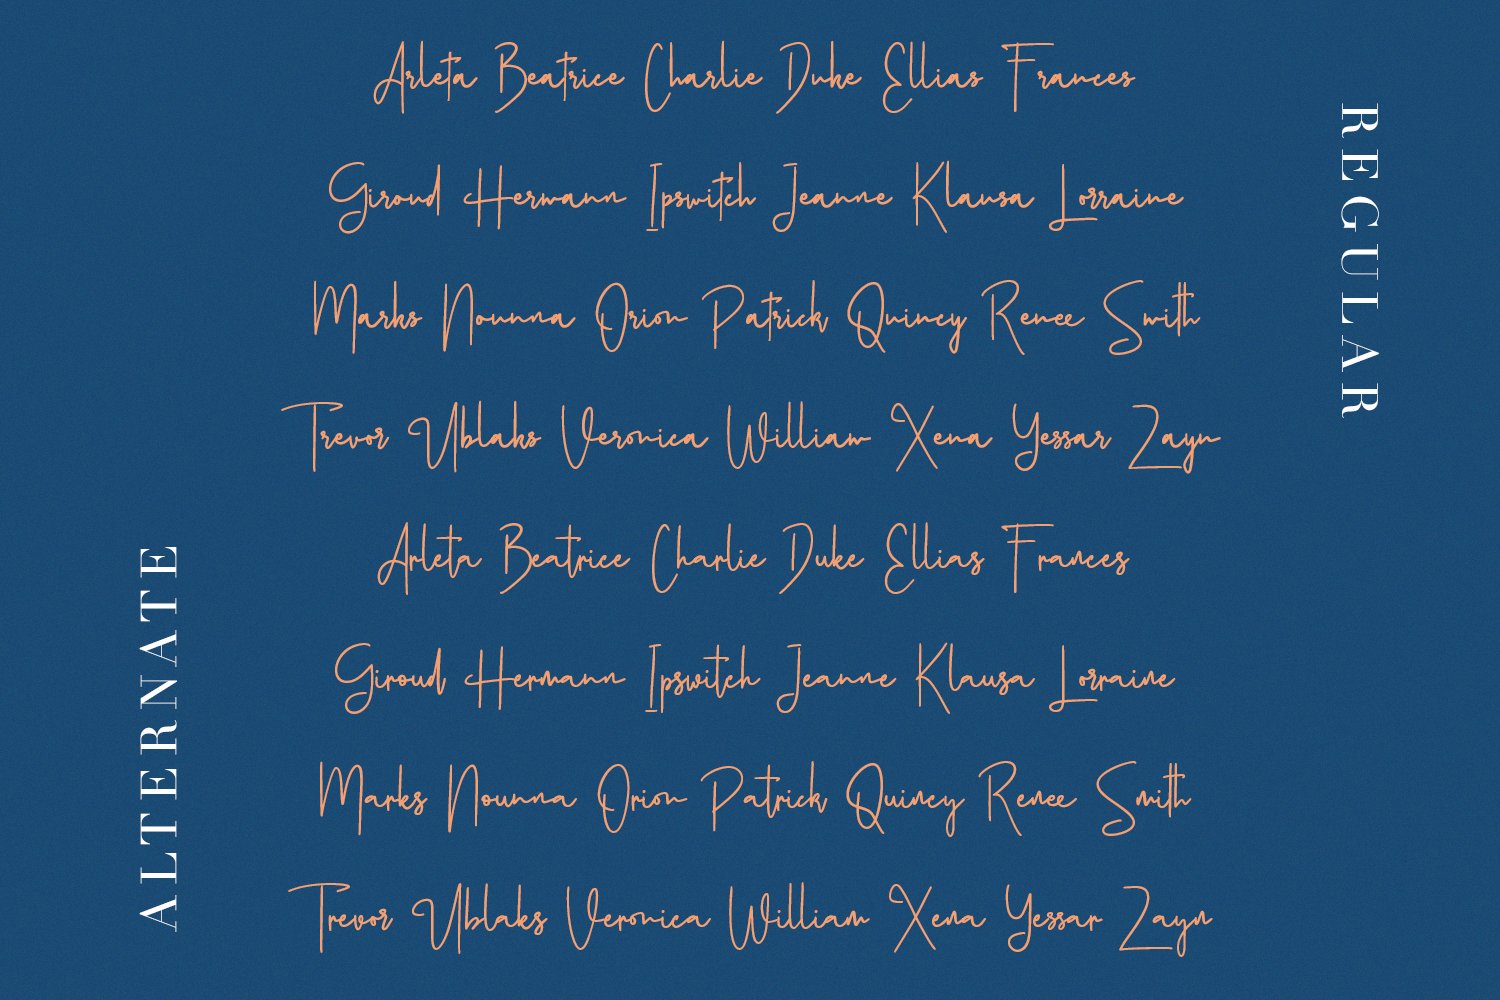 Arleta Beatrice Charlie Duke Ellias Frances
Giroud Hermann Ipswitch Jeanne Klausa Lorraine
Marks Nounna Orion Patrick Quincy Renee Smith
Trevor Ublaks Veronica William Xena Yessar Zayn
REGULAR
Arleta Beatrice Charlie Duke Ellias Frances
Giroud Hermann Ipswitch Jeanne Klausa Lorraine
Marks Nounna Orion Patrick Quincy Renee Smith
Trevor Ublaks Veronica William Xena Yessar Zayn
ALTERNATE